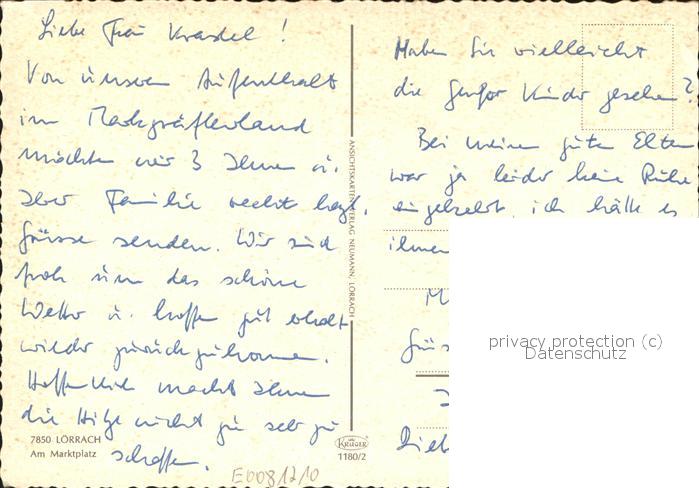 Liebe Frau Krastel!
Von unserem Aufenthalt
im Markgräflerland
möchten wir 3 Ihnen u.
Ihrer Familie recht herzl.
Grüsse senden. Wir sind
froh um das schöne
Wetter u. hoffen gut erholt
wieder zurückzukommen.
Hoffentlich macht Ihnen
die Hitze nicht zu sehr zu
schaffen.
7850 LÖRRACH
Am Marktplatz
ANSICHTSKARTENVERLAG NEUMANN, LÖRRACH
KRÜGER
1180/2
E0081210
Haben Sie vielleicht
die Genfer Kinder gesehen?
Bei meinen guten Eltern
war ja leider keine Ruhe
eingekehrt, ich hätte es
ihnen
privacy protection (c)
Datenschutz